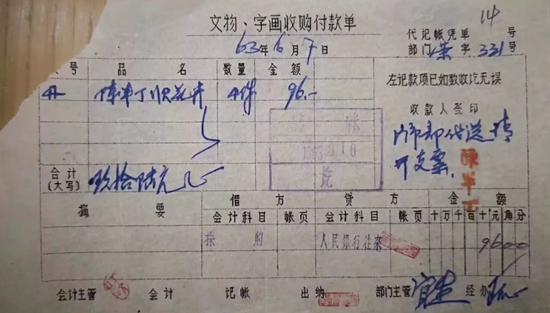 文物、字画收购付款单
14
代记帐凭单 号
63年6月7日
部门 字331号
号 品名 数量 金额
陈半丁 花卉 4件 96.—
左记款项已如数收讫无误
收款人签印
开支票
陈半丁
帐
讫
合计(大写) 玖拾陆元
摘要 借方 贷方 金额
会计科目 帐页 会计科目 帐页 十万千百十元角分
采购 人民银行往来 9600
会计主管 会计 记帐 出纳 部门主管 经办